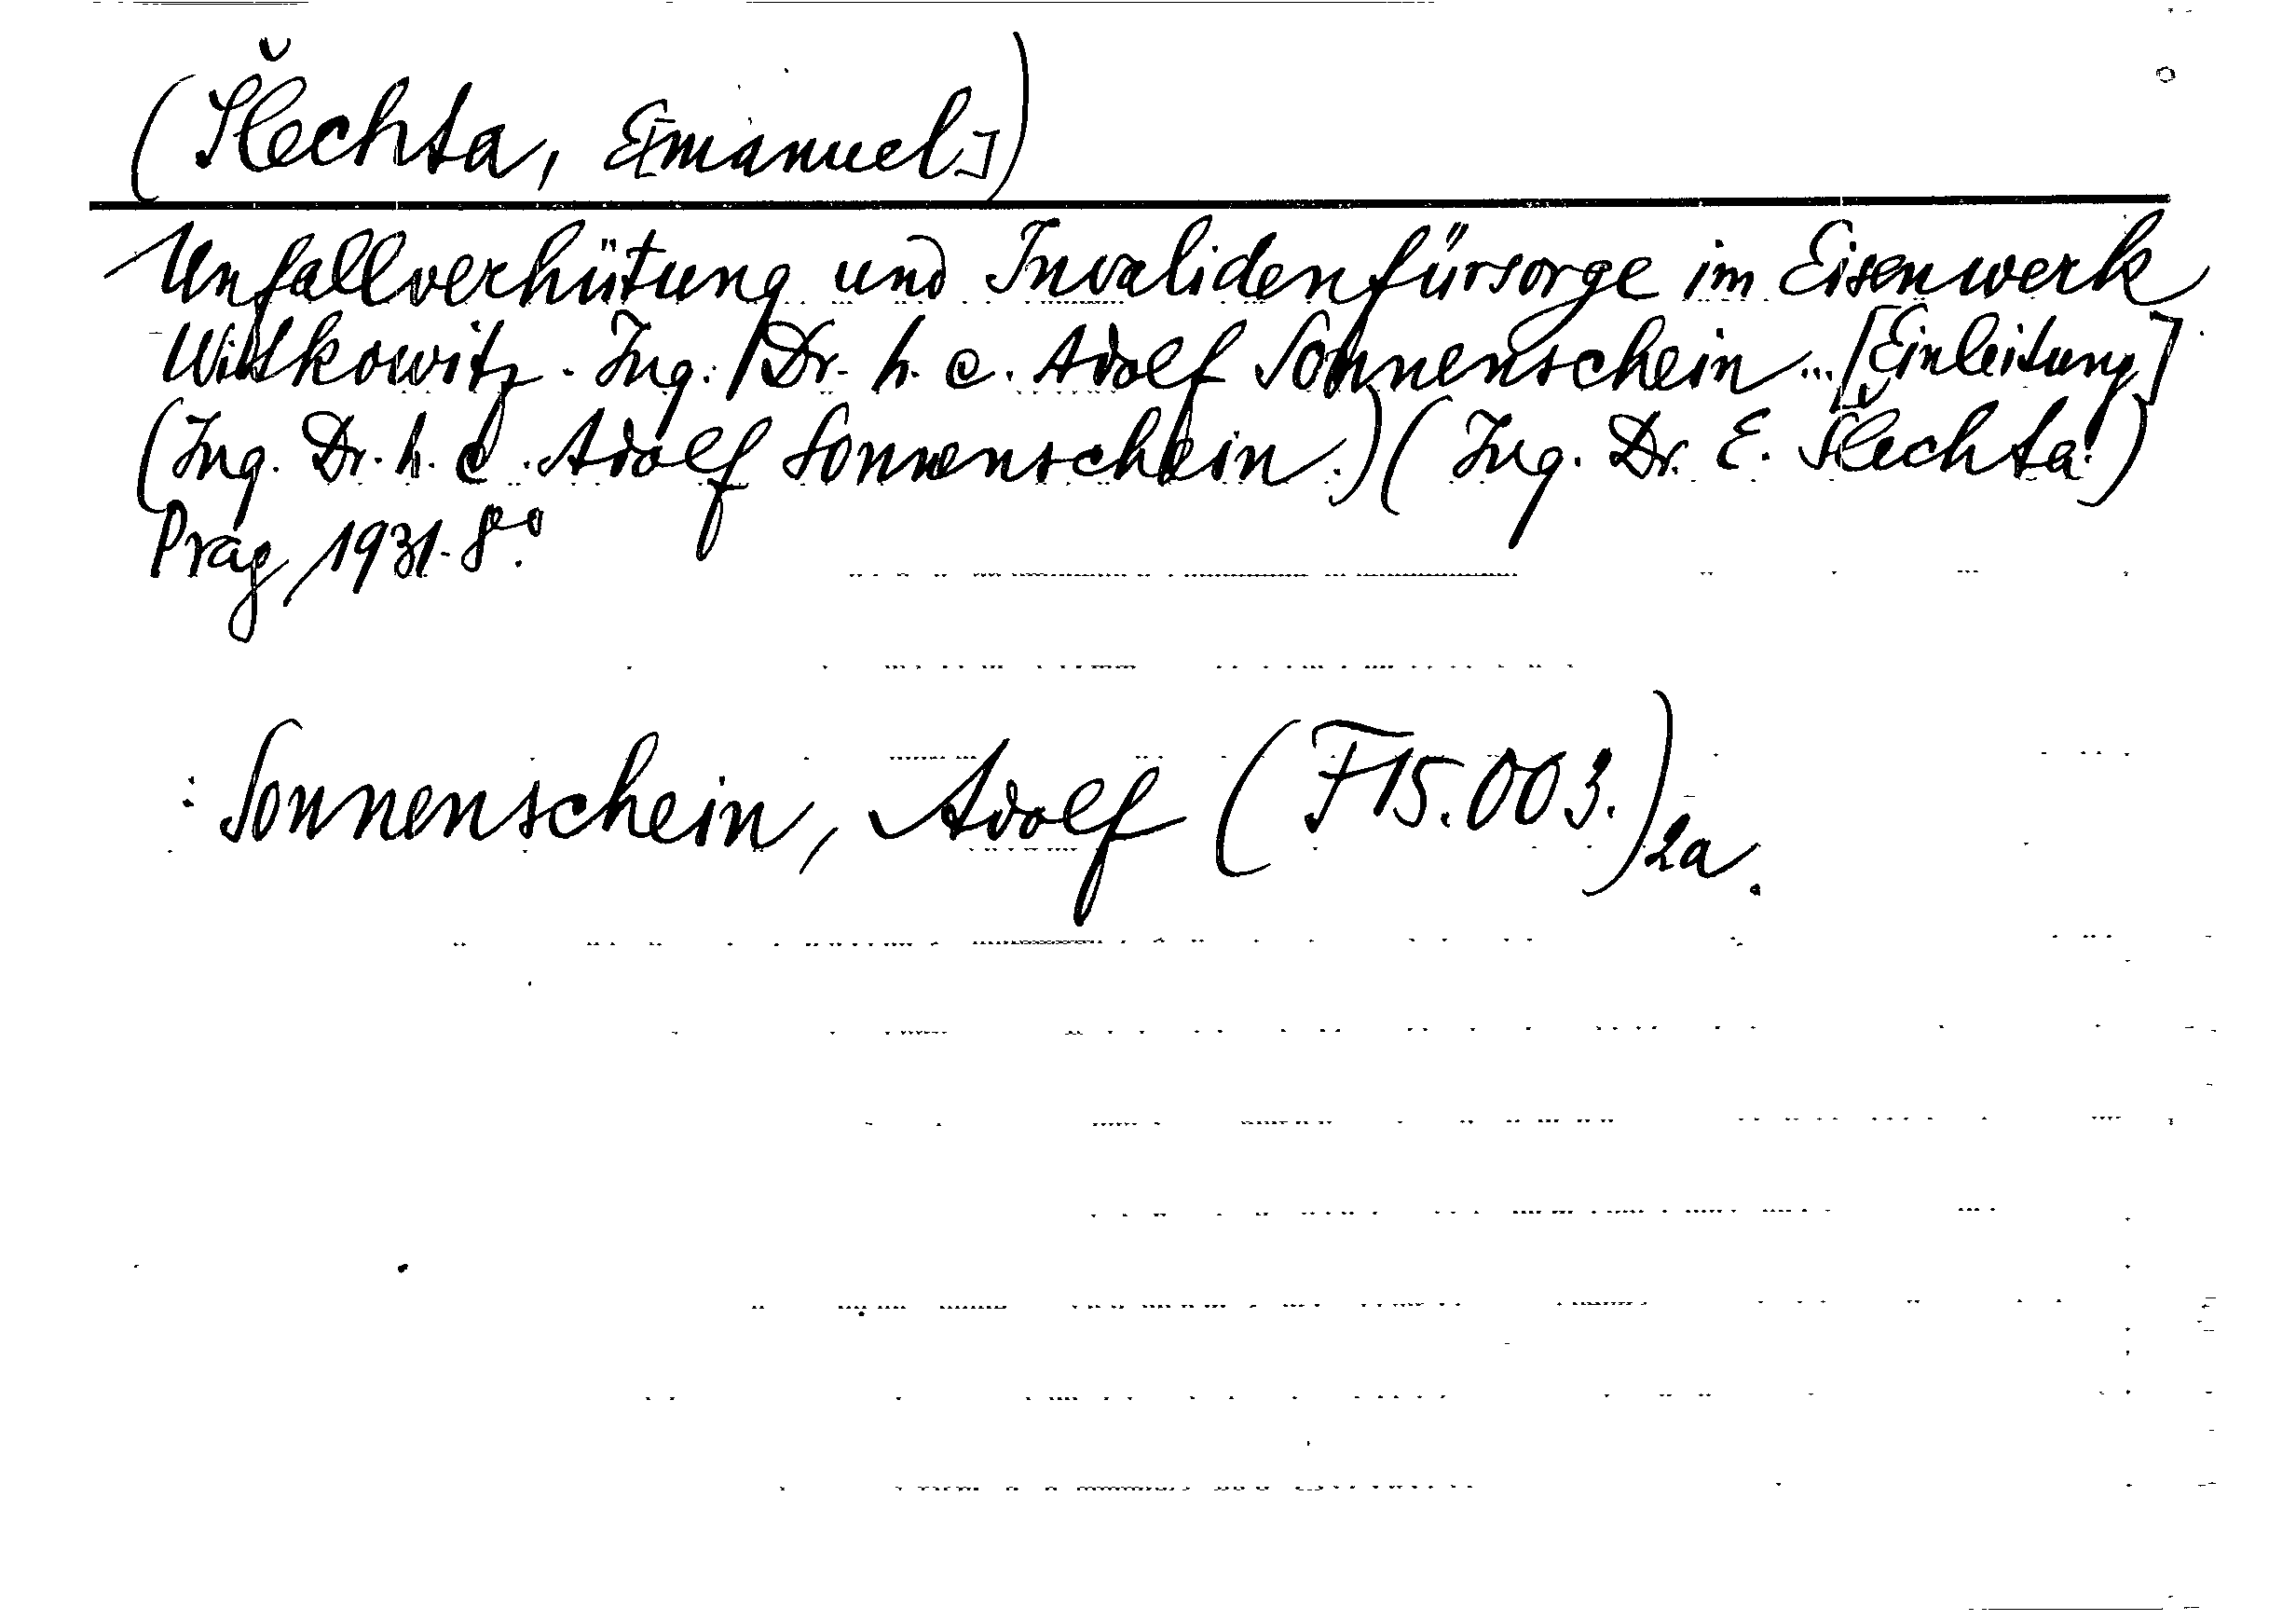 (Šlechta, E[manuel])
Unfallverhütung und Invalidenfürsorge im Eisenwerk
Witkowitz. Ing. Dr. h. c. Adolf Sonnenschein... [Einleitung]
(Ing. Dr. h. c. Adolf Sonnenschein.) (Ing. Dr. E. Šlechta.)
Prag, 1931. 8°.
: Sonnenschein, Adolf (F15.003.) 2a.